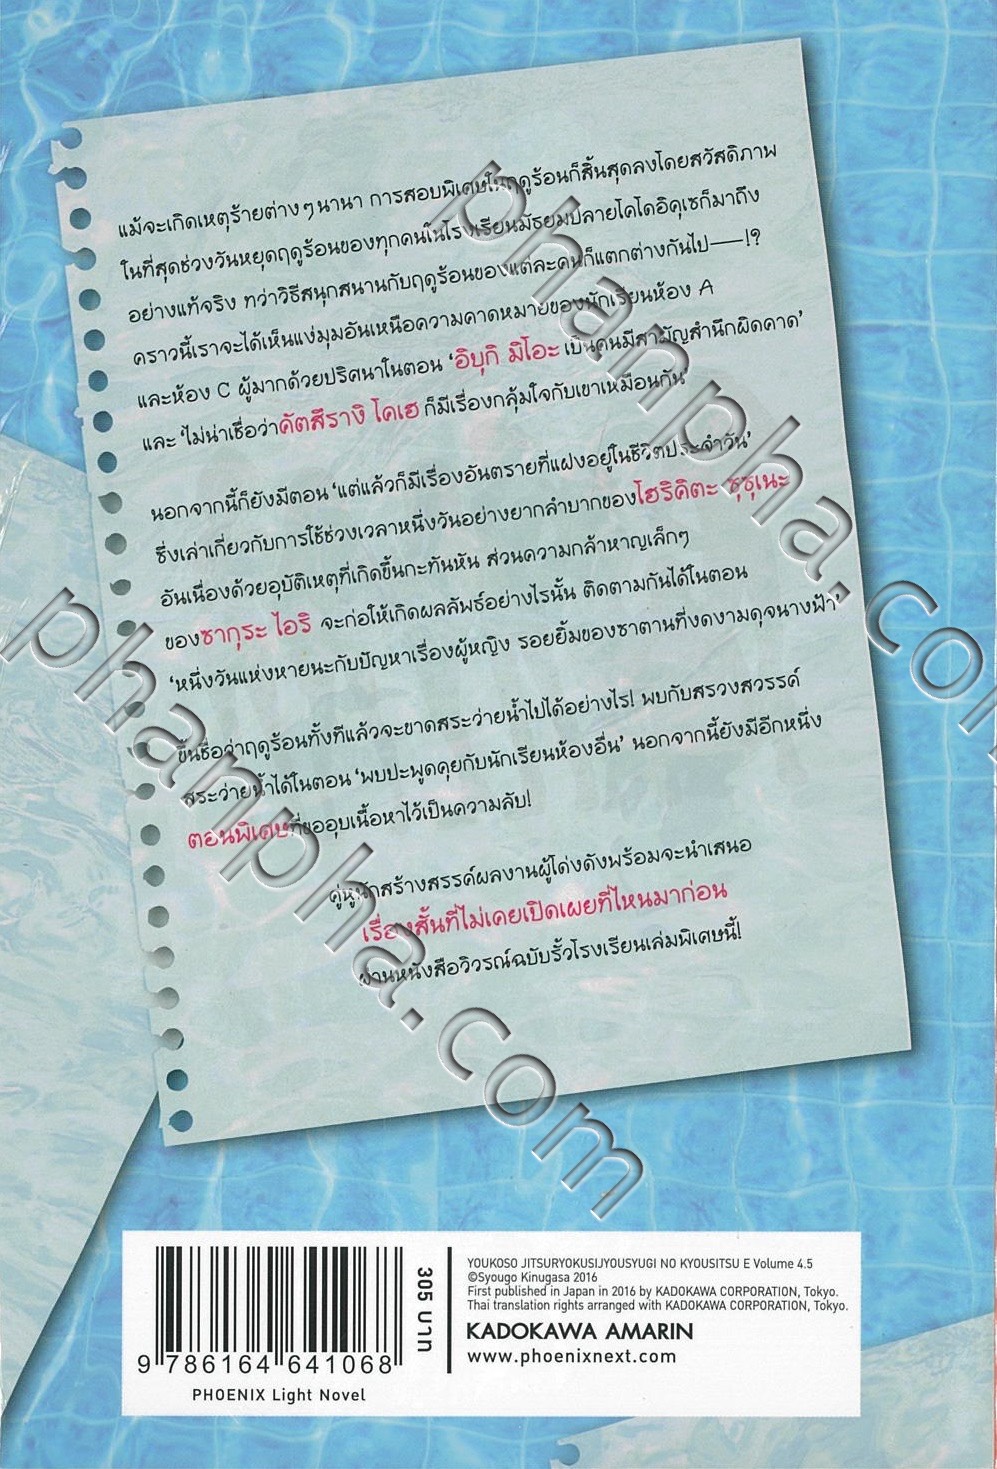 แม้จะเกิดเหตุร้ายต่างๆ นานา การสอบพิเศษในฤดูร้อนก็สิ้นสุดลงโดยสวัสดิภาพ
ในที่สุดช่วงวันหยุดฤดูร้อนของทุกคนในโรงเรียนมัธยมปลายโคโดอิคุเซก็มาถึง
อย่างแท้จริง ทว่าวิธีสนุกสนานกับฤดูร้อนของแต่ละคนก็แตกต่างกันไป——!?
คราวนี้เราจะได้เห็นแง่มุมอันเหนือความคาดหมายของนักเรียนห้อง A
และห้อง C ผู้มากด้วยปริศนาในตอน ‘อิบุกิ มิโอะ เป็นคนมีสามัญสำนึกผิดคาด’
และ ‘ไม่น่าเชื่อว่าคัตสึรางิ โคเฮ ก็มีเรื่องกลุ้มใจกับเขาเหมือนกัน’
นอกจากนี้ก็ยังมีตอน ‘แต่แล้วก็มีเรื่องอันตรายที่แฝงอยู่ในชีวิตประจำวัน’
ซึ่งเล่าเกี่ยวกับการใช้ช่วงเวลาหนึ่งวันอย่างยากลำบากของโฮริคิตะ ซุซุเนะ
อันเนื่องด้วยอุบัติเหตุที่เกิดขึ้นกะทันหัน ส่วนความกล้าหาญเล็กๆ
ของซากุระ ไอริ จะก่อให้เกิดผลลัพธ์อย่างไรนั้น ติดตามกันได้ในตอน
‘หนึ่งวันแห่งหายนะกับปัญหาเรื่องผู้หญิง รอยยิ้มของซาตานที่งดงามดุจนางฟ้า’
ขึ้นชื่อว่าฤดูร้อนทั้งทีแล้วจะขาดสระว่ายน้ำไปได้อย่างไร! พบกับสรวงสวรรค์
สระว่ายน้ำได้ในตอน ‘พบปะพูดคุยกับนักเรียนห้องอื่น’ นอกจากนี้ยังมีอีกหนึ่ง
ตอนพิเศษที่ขออุบเนื้อหาไว้เป็นความลับ!
คู่หูนักสร้างสรรค์ผลงานผู้โด่งดังพร้อมจะนำเสนอ
เรื่องสั้นที่ไม่เคยเปิดเผยที่ไหนมาก่อน
ผ่านหนังสือวิวรณ์ฉบับรั้วโรงเรียนเล่มพิเศษนี้!
phanpha.com
phanpha.com
9 786164 641068
PHOENIX Light Novel
305 บาท
YOUKOSO JITSURYOKUSIJYOUSYUGI NO KYOUSITSU E Volume 4.5
©Syougo Kinugasa 2016
First published in Japan in 2016 by KADOKAWA CORPORATION, Tokyo.
Thai translation rights arranged with KADOKAWA CORPORATION, Tokyo.
KADOKAWA AMARIN
www.phoenixnext.com